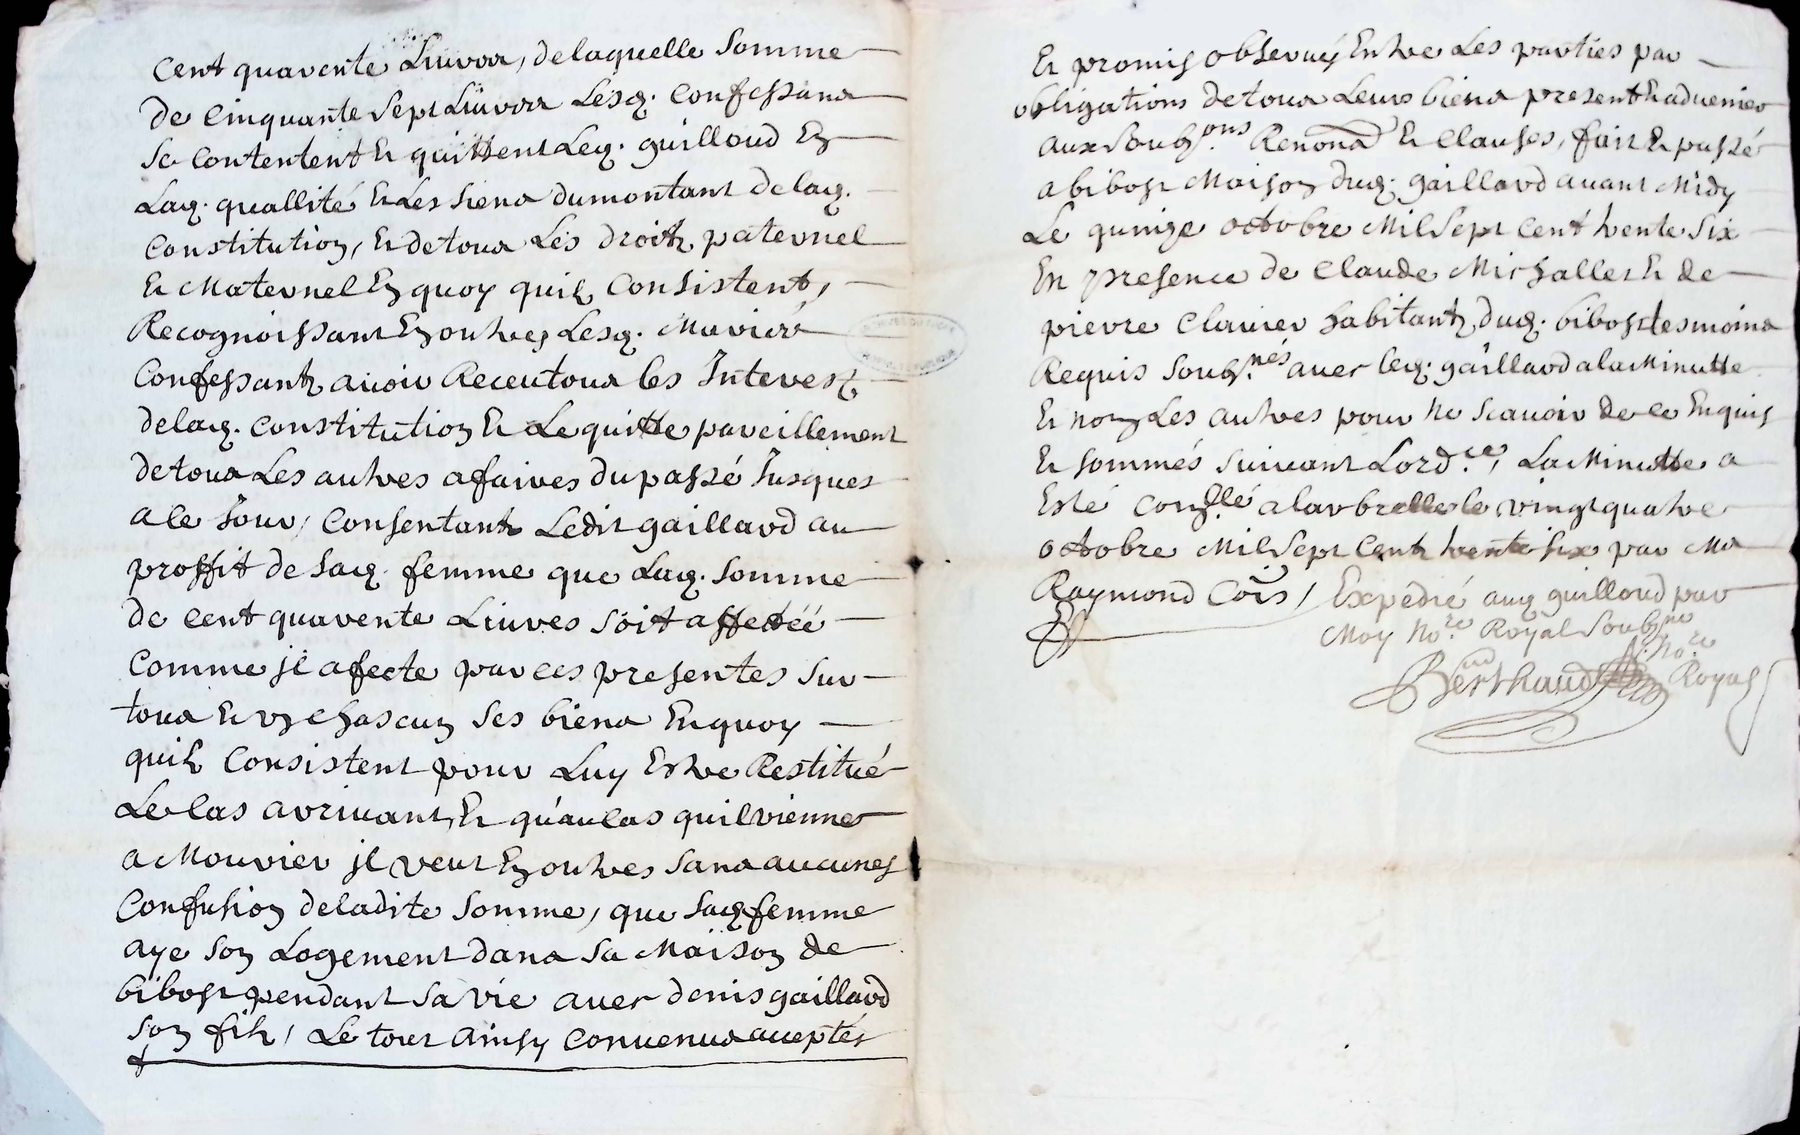 Cent quarente Liuvres, delaquelle somme
de Cinquante Sept Liüvres Lesq. Confessans
Se Contentent Et quittent Leq. guilloud En
Laq. quallité Et Les Siens dumontant delaq.
Constitution, Et detous Les droits paternel
Et Maternel En quoy quils Consistent,
Recognoissant En outres Lesq. Mariés
Confessants auoir Receu tous les Interest
delaq. Constitution Et Le quitte pareillement
detous Les autres afaires du passé Jusques
a Ce Jour, Consentant Ledit gaillard au
proffit de Saq. femme que Laq. Somme
de Cent quarente Liures Soit affectéé
Comme jl afecte par ces presentes Sur
tous Et vn chascun Ses biens En quoy
quils Consistent pour Luy Estre Restitué
Le Cas arriuant, Et qu'au Cas quil vienne
a Mourrier jl veut En outres Sans aucunes
Confusion deladite Somme, que Saq. femme
aye Son Logement dans Sa Maison de
bibost pendant Sa vie auec denis gaillard
Son fils, Le tout ainsy Conuenus acceptés
Et promis obseruer Entre Les parties par
obligations de tous Leurs biens present & aduenier
aux Soub.ons Renon.on Et Clauses, fait Et passé
a bibost Maison duq. gaillard auant Midy
Le quinze octobre Mil Sept Cent trente Six
En presence de Claude Michallet Et de
pierre Clauier habitants, duq. bibost tesmoins
Requis Soub.nés auec leq. gaillard a la Minutte
Et non Les autres pour ne Scauoir de ce Enquis
Et Sommés Suiuant Lord.ce, La Minutte a
Esté Con.llé a larbrelle le vingt quatre
octobre Mil Sept Cent trente Six par Me
Raymond Coīs, Expedié auq guilloud par
Moy No.re Royal Soub.né
Berthaud No.re Royal